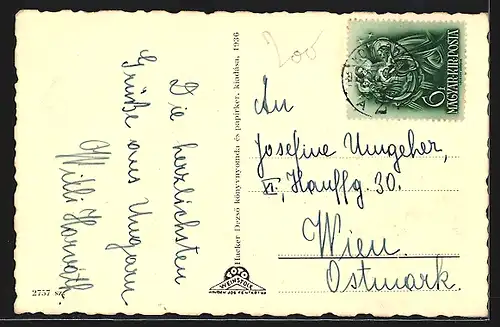 Die herzlichsten
Grüße aus Ungarn
Willi Horváth
2757 sz.
Hacker Dezső könyvnyomda és papírker. kiadása, 1936
WEINSTOCK
200
MAGYAR KIR. POSTA
6
An
Josefine Umgeher,
XI, Hauffg 30.
Wien.
Ostmark.